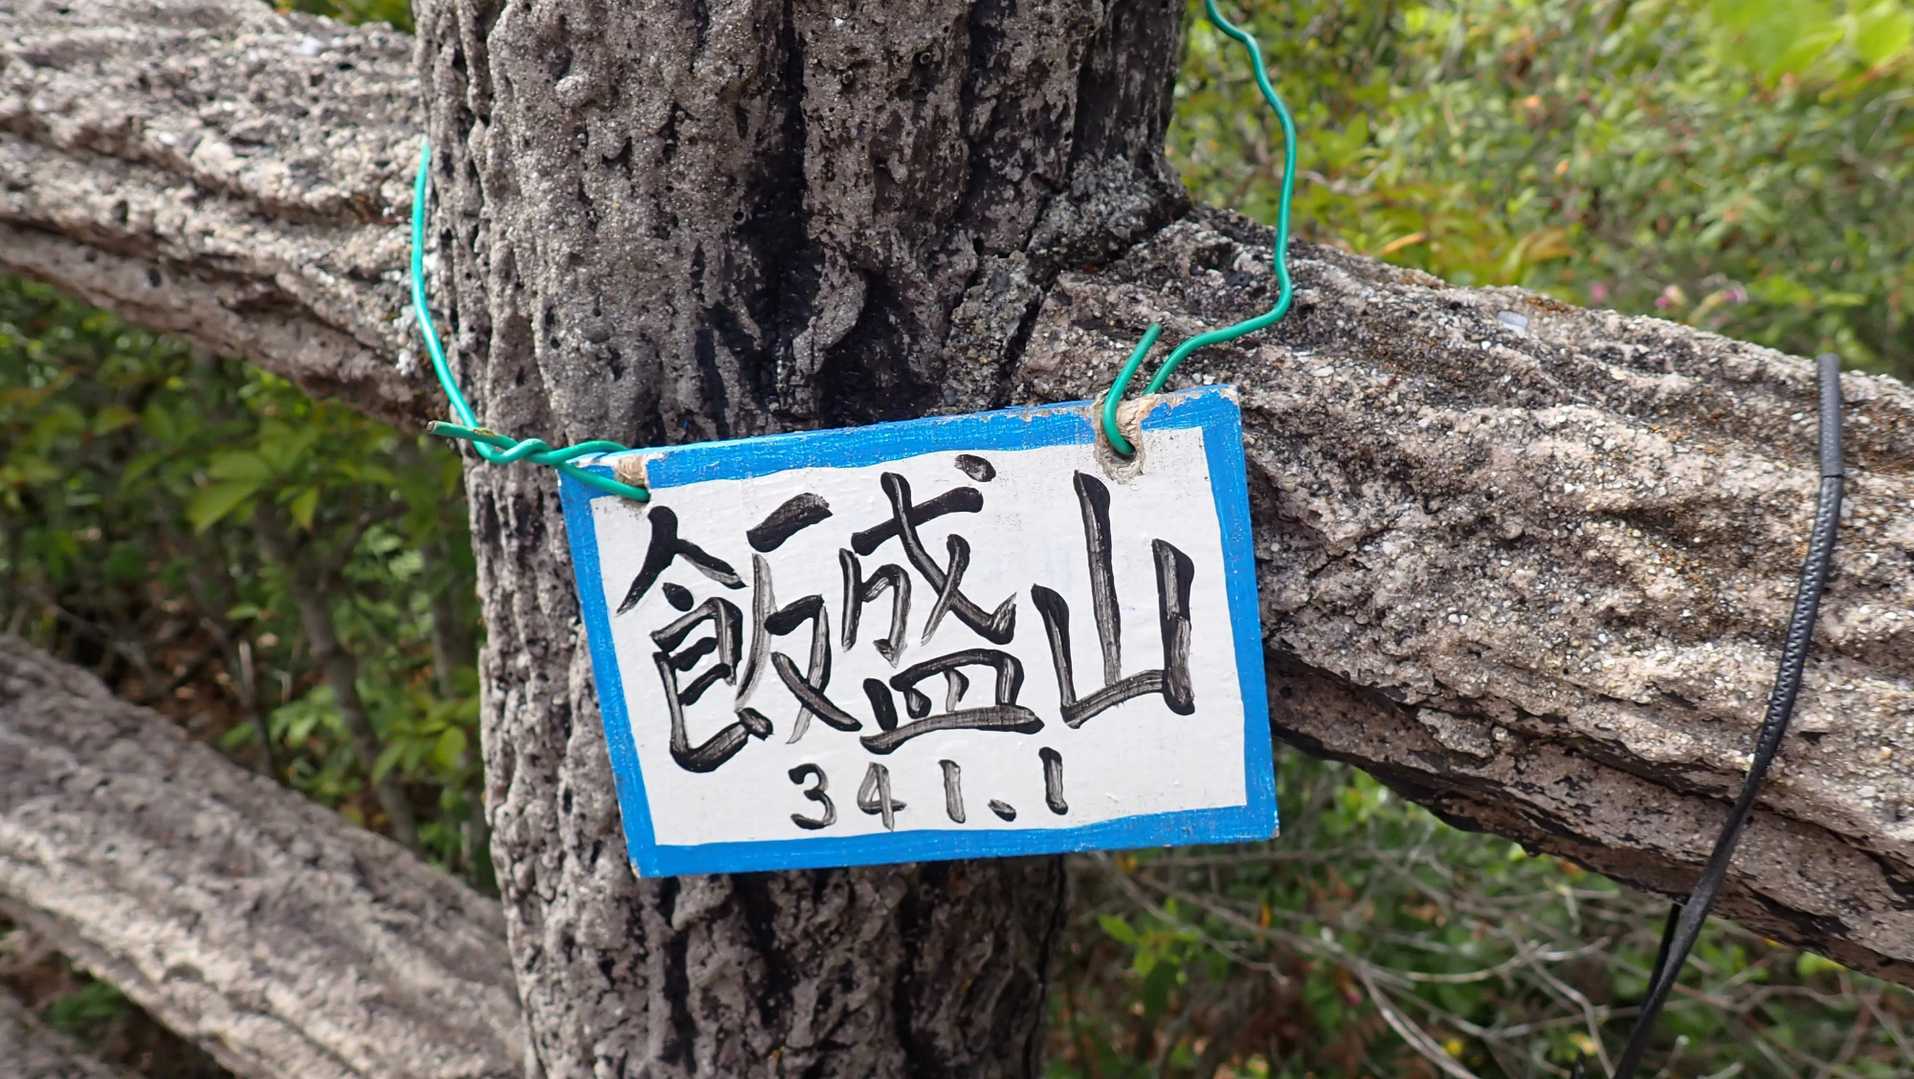 飯盛山
341.1